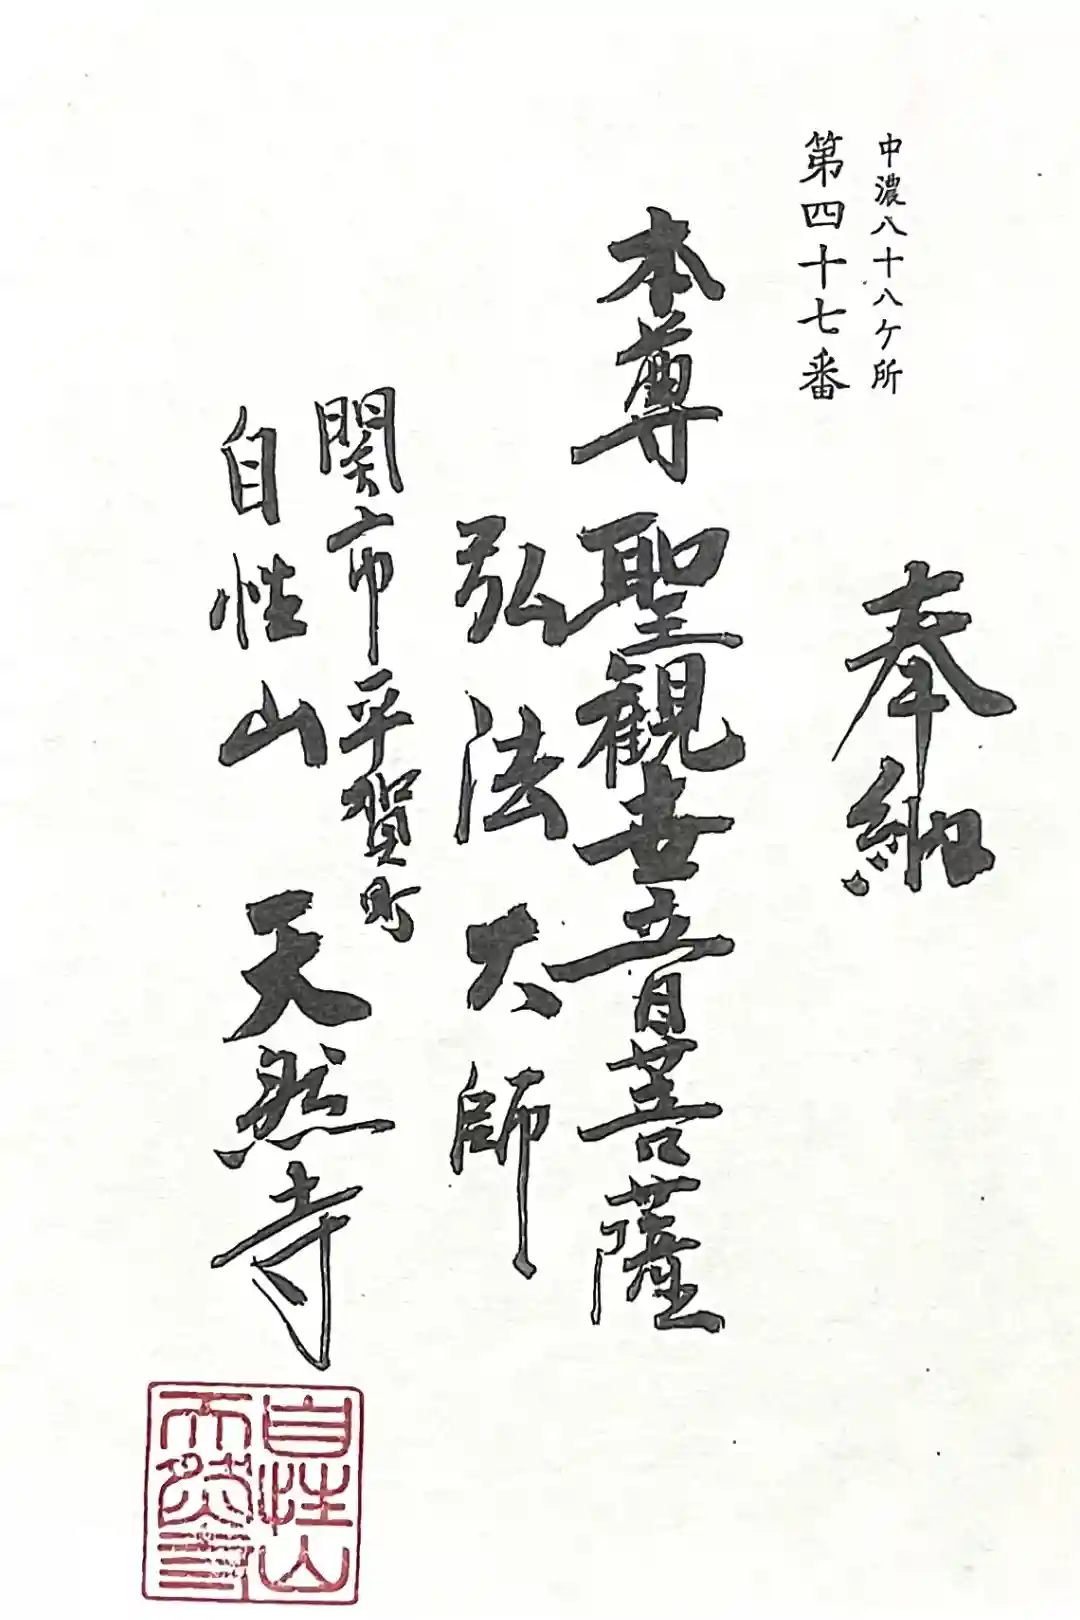 中濃八十八ケ所
第四十七番
奉納
本尊 聖観世音菩薩
弘法大師
関市平賀町
自性山 天然寺
自性山
天然寺